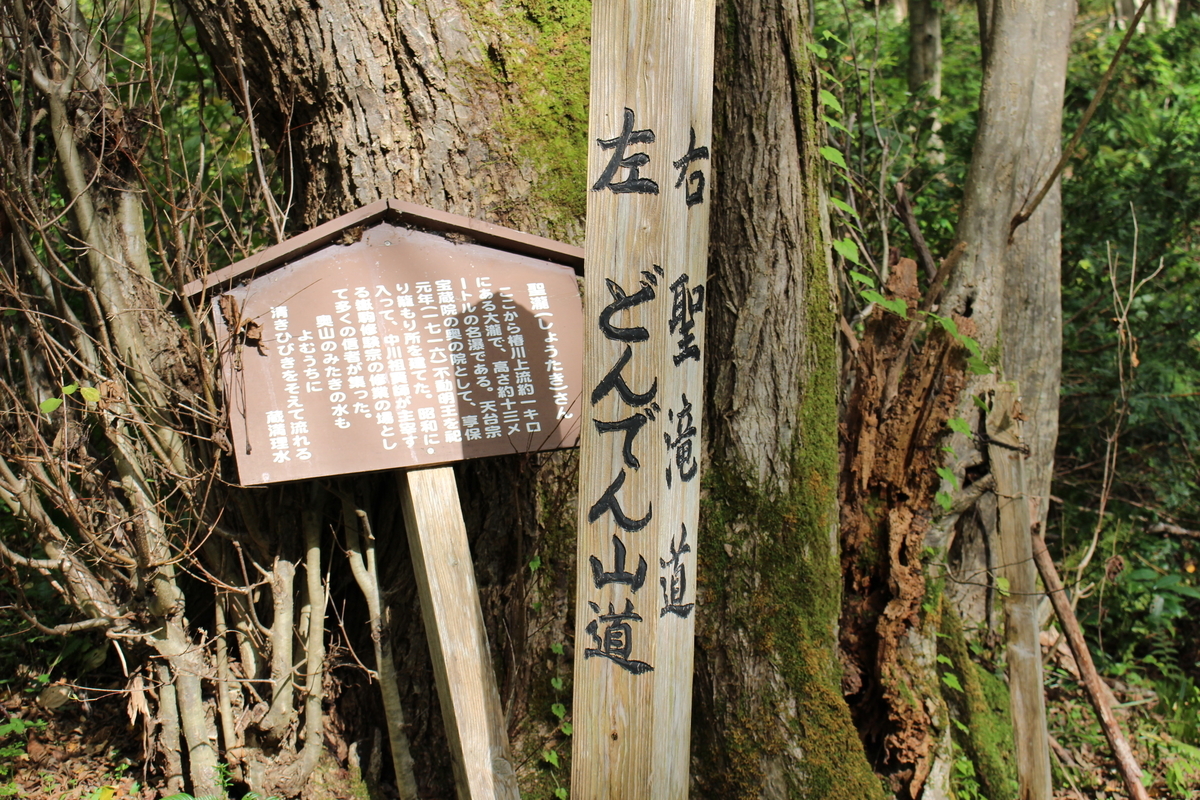 右 聖滝道
左 どんでん山道
聖瀧(しょうたき)さん
ここから椿川上流約一キロ
にある大瀧で、高さ約十三メ
ートルの名瀑である。天台宗
宝蔵院の奥の院として、享保
元年(一七一六)不動明王を祀
り籠もり所を建てた。昭和に
入って、中川祖貫が主宰す
る修験宗の修業の場とし
て多くの信者が集った。
奥山のみたきの水も
よむうちに
清きひびきをそえて流れる
蔵満理水